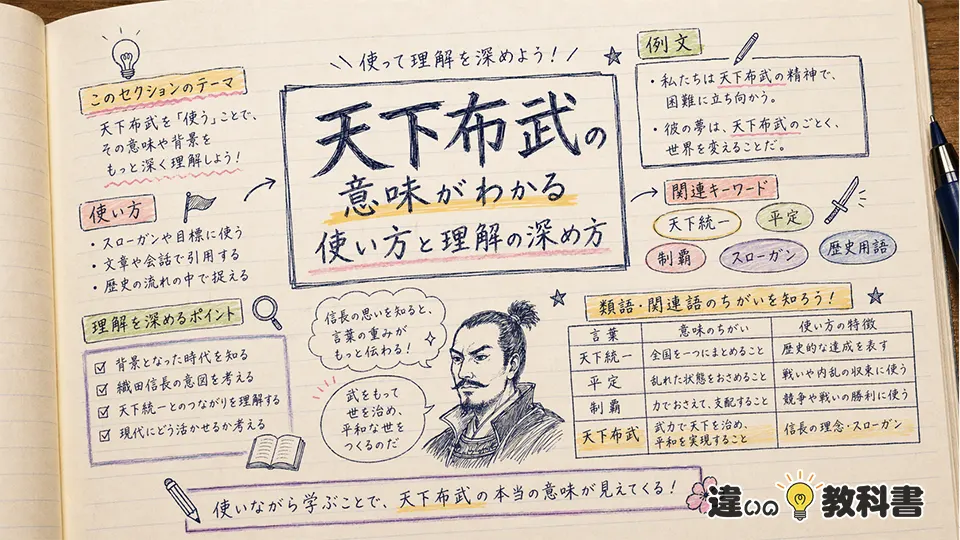 使って理解を深めよう！
天下布武の
意味がわかる
使い方と理解の深め方
このセクションのテーマ
天下布武を「使う」ことで、
その意味や背景を
もっと深く理解しよう！
使い方
・スローガンや目標に使う
・文章や会話で引用する
・歴史の流れの中で捉える
理解を深めるポイント
背景となった時代を知る
織田信長の意図を考える
天下統一とのつながりを理解する
現代にどう活かせるか考える
信長の思いを知ると、
言葉の重みが
もっと伝わる！
武をもって
世を治め、
平和な世を
つくるのだ
例文
・私たちは天下布武の精神で、
困難に立ち向かう。
・彼の夢は、天下布武のごとく、
世界を変えることだ。
関連キーワード
天下統一 平定
制覇 スローガン 歴史用語
類語・関連語のちがいを知ろう！
言葉 意味のちがい 使い方の特徴
天下統一 全国を一つにまとめること 歴史的な達成を表す
平定 乱れた状態をおさめること 戦いや内乱の収束に使う
制覇 力でおさえて、支配すること 競争や戦いの勝利に使う
天下布武 武力で天下を治め、 信長の理念・スローガン
平和を実現すること
使いながら学ぶことで、天下布武の本当の意味が見えてくる！
違いの教科書